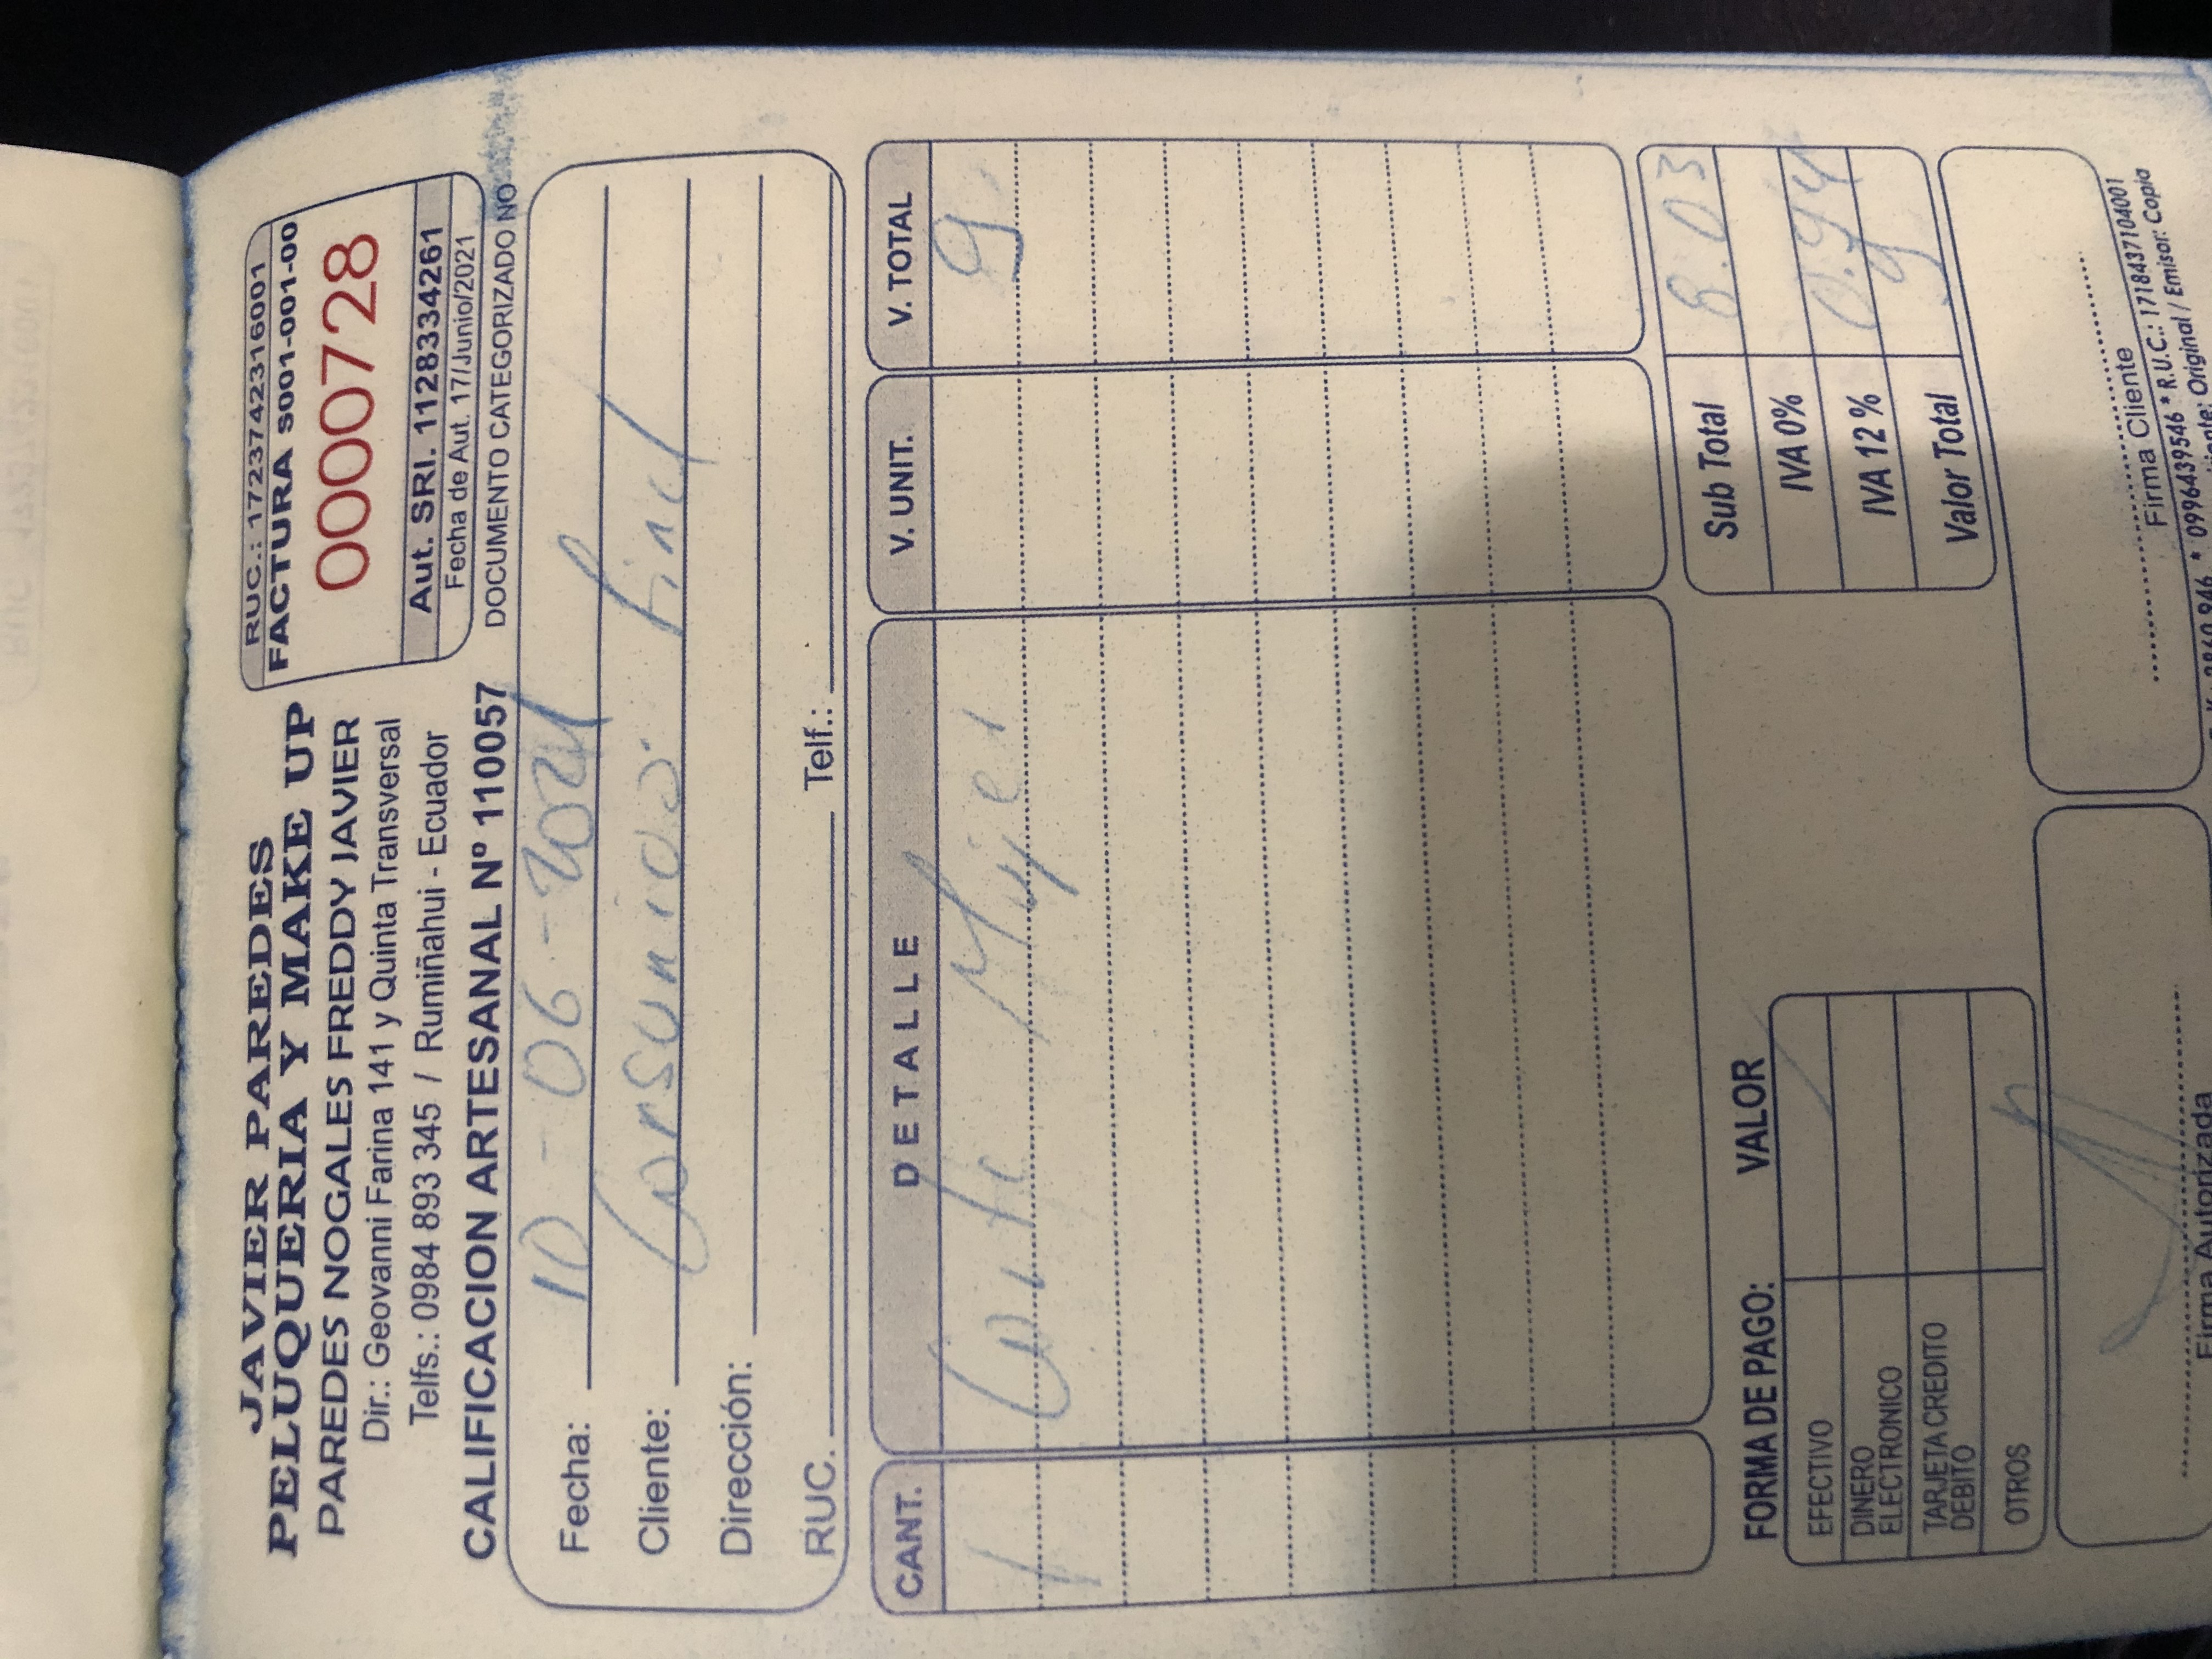 JAVIER PAREDES
PELUQUERIA Y MAKE UP
PAREDES NOGALES FREDDY JAVIER
Dir.: Geovanni Farina 141 y Quinta Transversal
Telfs.: 0984 893 345 / Rumiñahui - Ecuador
CALIFICACION ARTESANAL Nº 110057
RUC.: 1723742316001
FACTURA S001-001-00
0000728
Aut. SRI. 1128334261
Fecha de Aut. 17/Junio/2021
DOCUMENTO CATEGORIZADO NO
Fecha: 10 - 06 - 2021
Cliente: Consumidor Final
Dirección:
RUC. Telf.:
CANT. DETALLE V. UNIT. V. TOTAL
1 Corte Mujer 9
Sub Total 8.03
IVA 0%
IVA 12 % 0.94
Valor Total 9
FORMA DE PAGO: VALOR
EFECTIVO
DINERO
ELECTRONICO
TARJETA CREDITO
DEBITO
OTROS
Firma Autorizada
Firma Cliente
2860 946 * 0996439546 * R.U.C.: 1718437104001
Original / Emisor: Copia